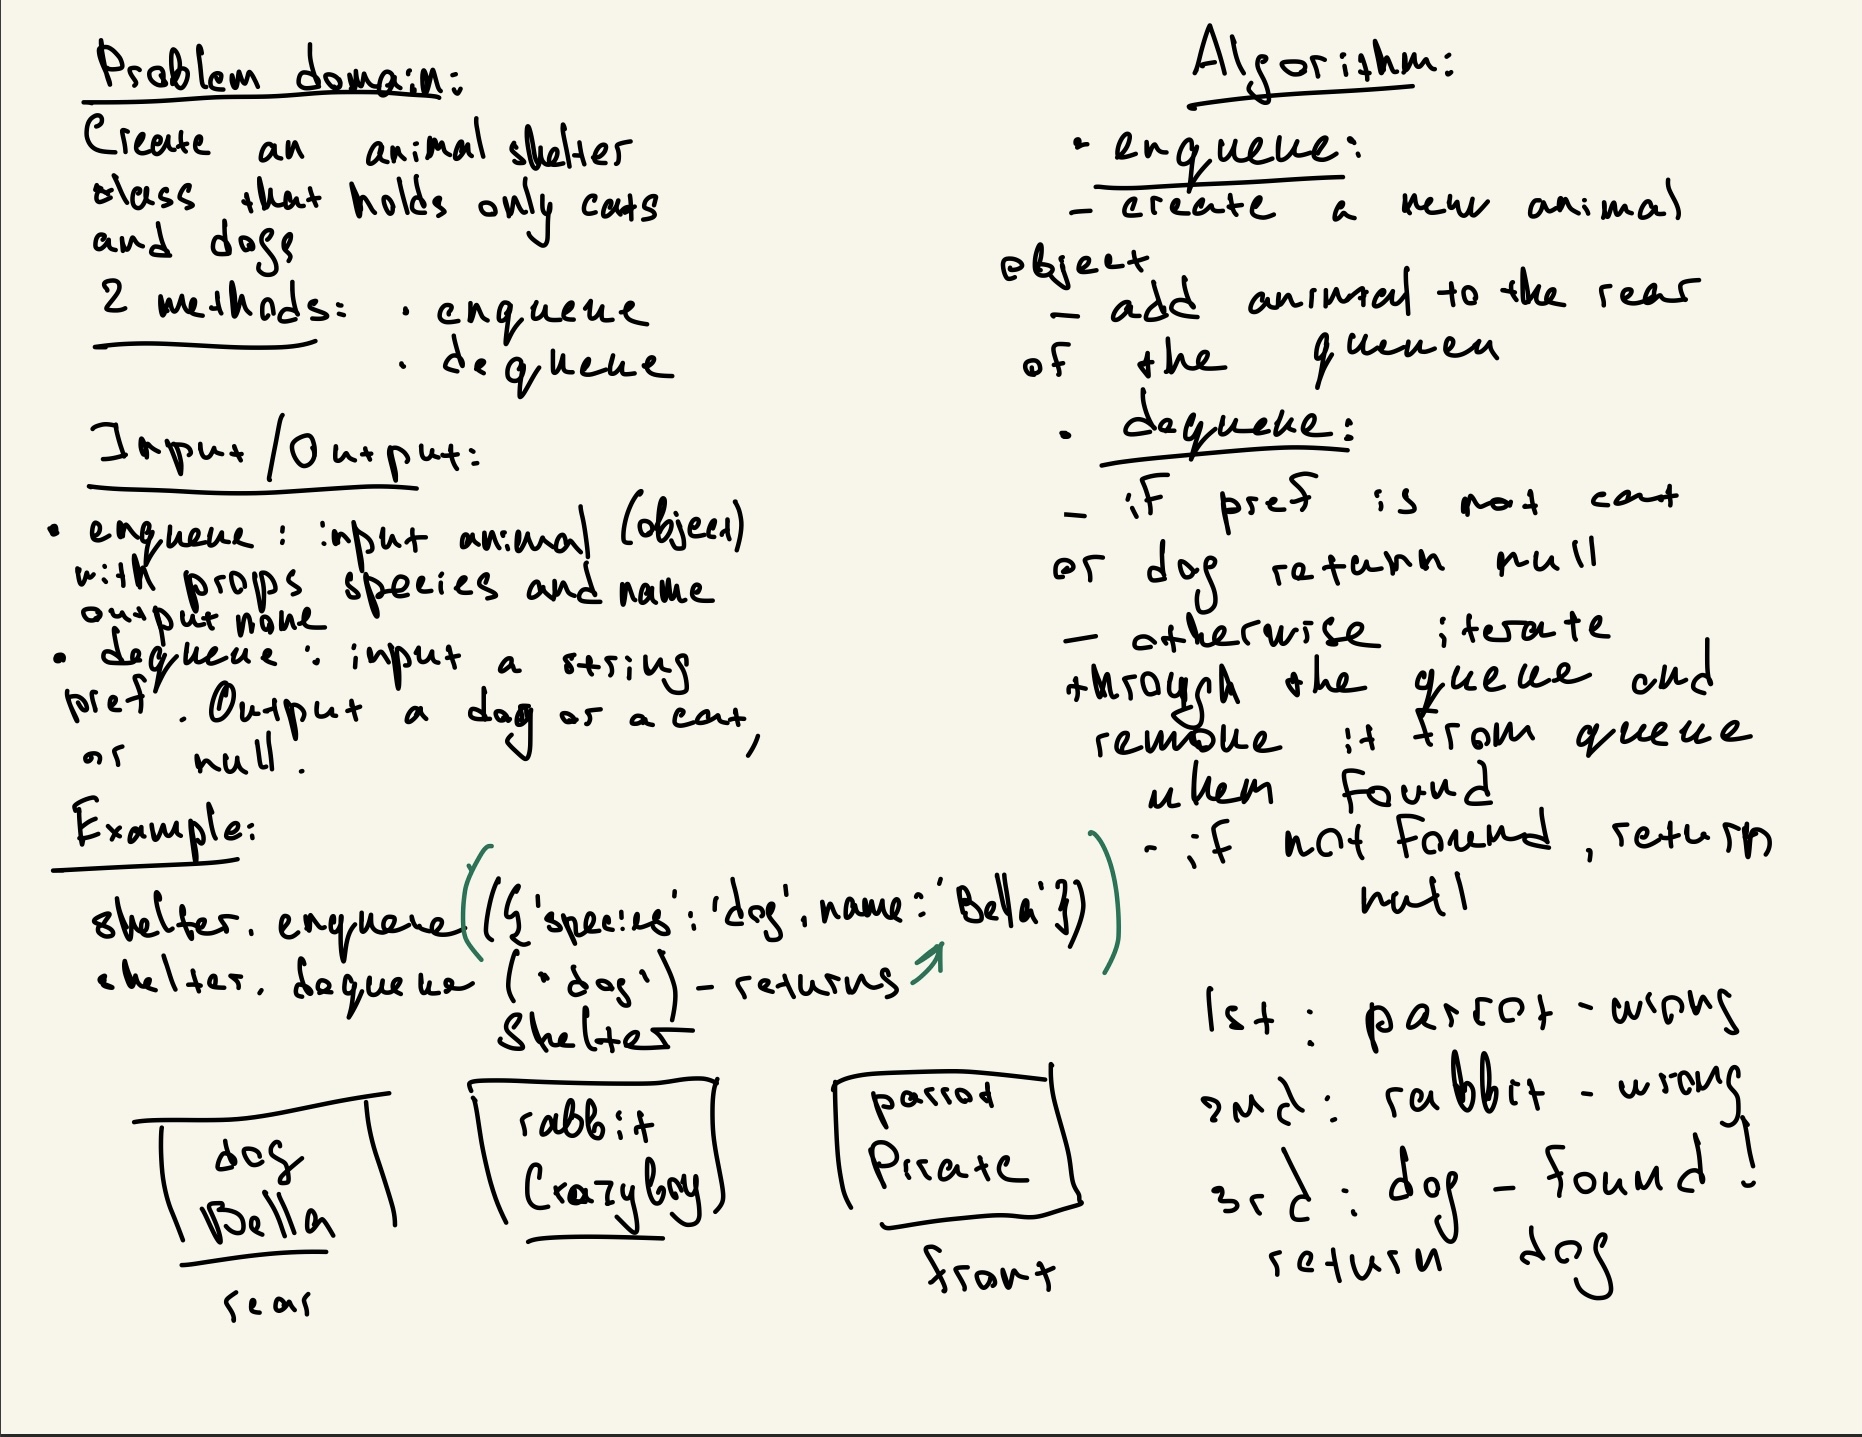 Problem domain:
Create an animal shelter
class that holds only cats
and dogs
2 methods: • enqueue
• dequeue
Input/Output:
• enqueue: input animal (object)
with props species and name
output none
• dequeue: input a string
pref. Output a dog or a cat,
or null.
Example:
shelter.enqueue(({'species': 'dog', name: 'Bella'}))
shelter.dequeue ('dog') - returns
Shelter
dog
Bella
rear
rabbit
Crazyboy
parrot
Pirate
front
Algorithm:
• enqueue:
- create a new animal
object
- add animal to the rear
of the queuen
• dequeue:
- if pref is not cat
or dog return null
- otherwise iterate
through the queue and
remove it from queue
when found
- if not found, return
null
1st: parrot - wrong
2nd: rabbit - wrong
3rd: dog - found!
return dog